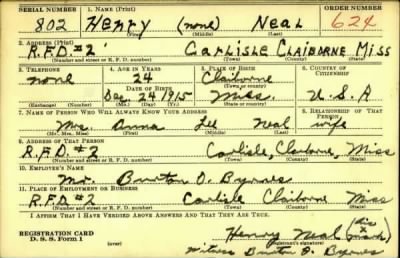 SERIAL NUMBER 1. NAME (Print) ORDER NUMBER
802 Henry (none) Neal 624
(First) (Middle) (Last)
2. ADDRESS (Print)
R.F.D. #2 Carlisle Claiborne Miss
(Number and street or R. F. D. number) (Town) (County) (State)
3. TELEPHONE 4. AGE IN YEARS 5. PLACE OF BIRTH 6. COUNTRY OF CITIZENSHIP
none 24 Claiborne
DATE OF BIRTH (Town or county)
Dec. 24 1915 Miss. U.S.A
(Exchange) (Number) (Mo.) (Day) (Yr.) (State or country)
7. NAME OF PERSON WHO WILL ALWAYS KNOW YOUR ADDRESS 8. RELATIONSHIP OF THAT PERSON
Mrs. Anna Lee Neal wife
(Mr., Mrs., Miss) (First) (Middle) (Last)
9. ADDRESS OF THAT PERSON
R.F.D. #2 Carlisle, Claiborne, Miss
(Number and street or R. F. D. number) (Town) (County) (State)
10. EMPLOYER'S NAME
Mr. Burton O. Byrnes
11. PLACE OF EMPLOYMENT OR BUSINESS
R.F.D. #2 Carlisle Claiborne Miss
(Number and street or R. F. D. number) (Town) (County) (State)
I AFFIRM THAT I HAVE VERIFIED ABOVE ANSWERS AND THAT THEY ARE TRUE.
REGISTRATION CARD Henry Neal (his x mark)
D. S. S. Form 1 (over) (Registrant's signature)
Witness Burton O. Byrnes